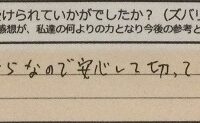 受けられていかがでしたか？（ズバリ
感想が、私達の何よりの力となり今後の参考と
らなので安心して切って